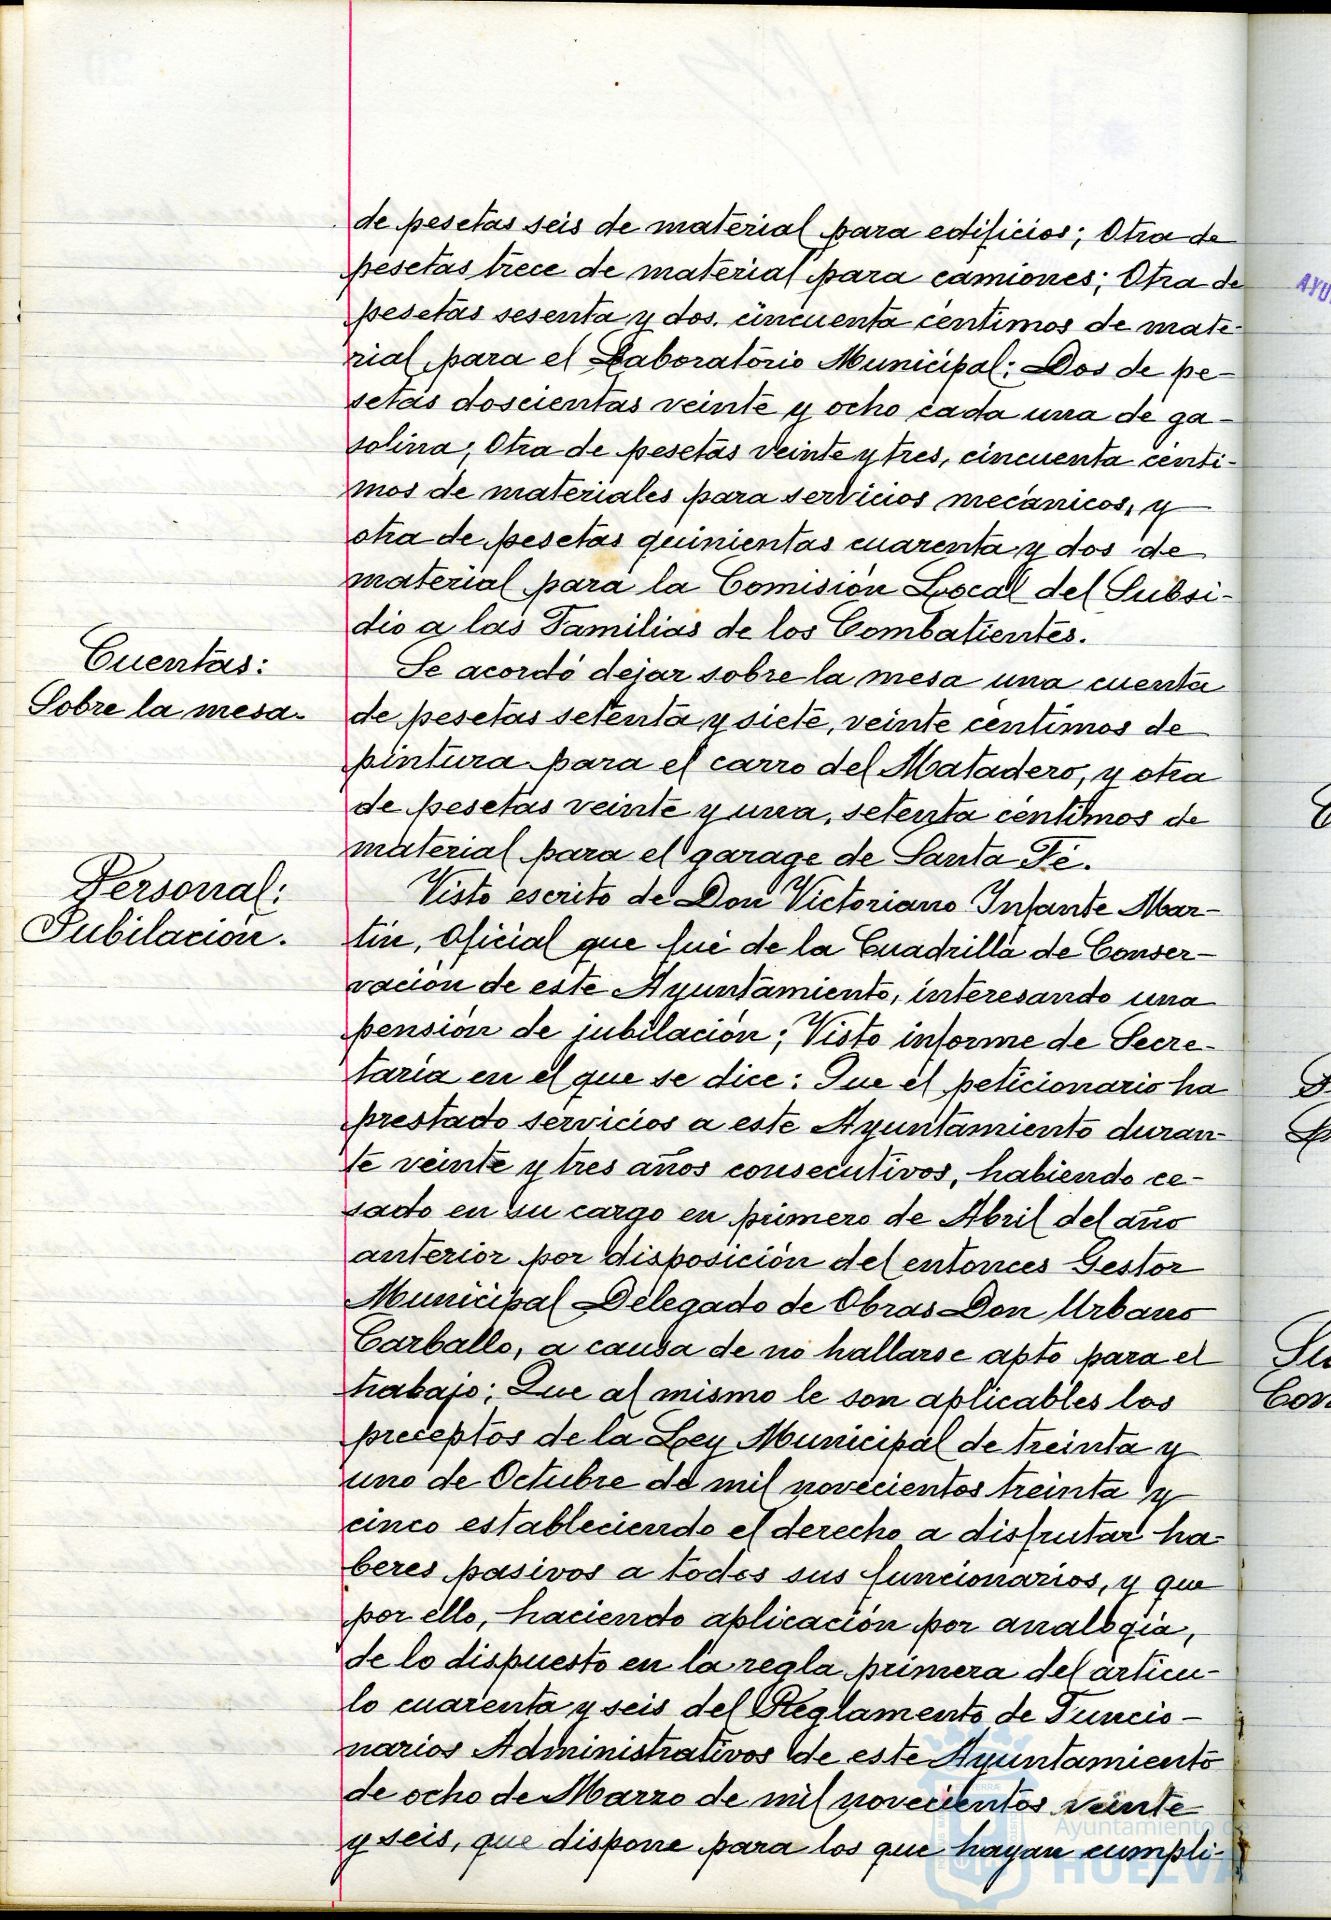 de pesetas seis de material para edificios; Otra de
pesetas trece de material para camiones; Otra de
pesetas sesenta y dos, cincuenta céntimos de mate-
rial para el Laboratorio Municipal; Dos de pe-
setas doscientas veinte y ocho cada una de ga-
solina; Otra de pesetas veinte y tres, cincuenta cénti-
mos de materiales para servicios mecánicos, y
otra de pesetas quinientas cuarenta y dos de
material para la Comisión Local del Subsi-
dio a las Familias de los Combatientes.
Cuentas:
Sobre la mesa.
Se acordó dejar sobre la mesa una cuenta
de pesetas setenta y siete, veinte céntimos de
pintura para el carro del Matadero, y otra
de pesetas veinte y una, setenta céntimos de
material para el garage de Santa Fé.
Personal:
Jubilación.
Visto escrito de Don Victoriano Infante Mar-
tín, Oficial que fué de la Cuadrilla de Conser-
vación de este Ayuntamiento, interesando una
pensión de jubilación; Visto informe de Secre-
taría en el que se dice: Que el peticionario ha
prestado servicios a este Ayuntamiento duran-
te veinte y tres años consecutivos, habiendo ce-
sado en su cargo en primero de Abril del año
anterior por disposición del entonces Gestor
Municipal Delegado de Obras Don Urbano
Carballo, a causa de no hallarse apto para el
trabajo; Que al mismo le son aplicables los
preceptos de la Ley Municipal de treinta y
uno de Octubre de mil novecientos treinta y
cinco estableciendo el derecho a disfrutar ha-
beres pasivos a todos sus funcionarios, y que
por ello, haciendo aplicación por analogía,
de lo dispuesto en la regla primera del artícu-
lo cuarenta y seis del Reglamento de Funcio-
narios Administrativos de este Ayuntamiento
de ocho de Marzo de mil novecientos veinte
y seis, que dispone para los que hayan cumpli-
Ayuntamiento de
HUELVA
AYU
Su
Con